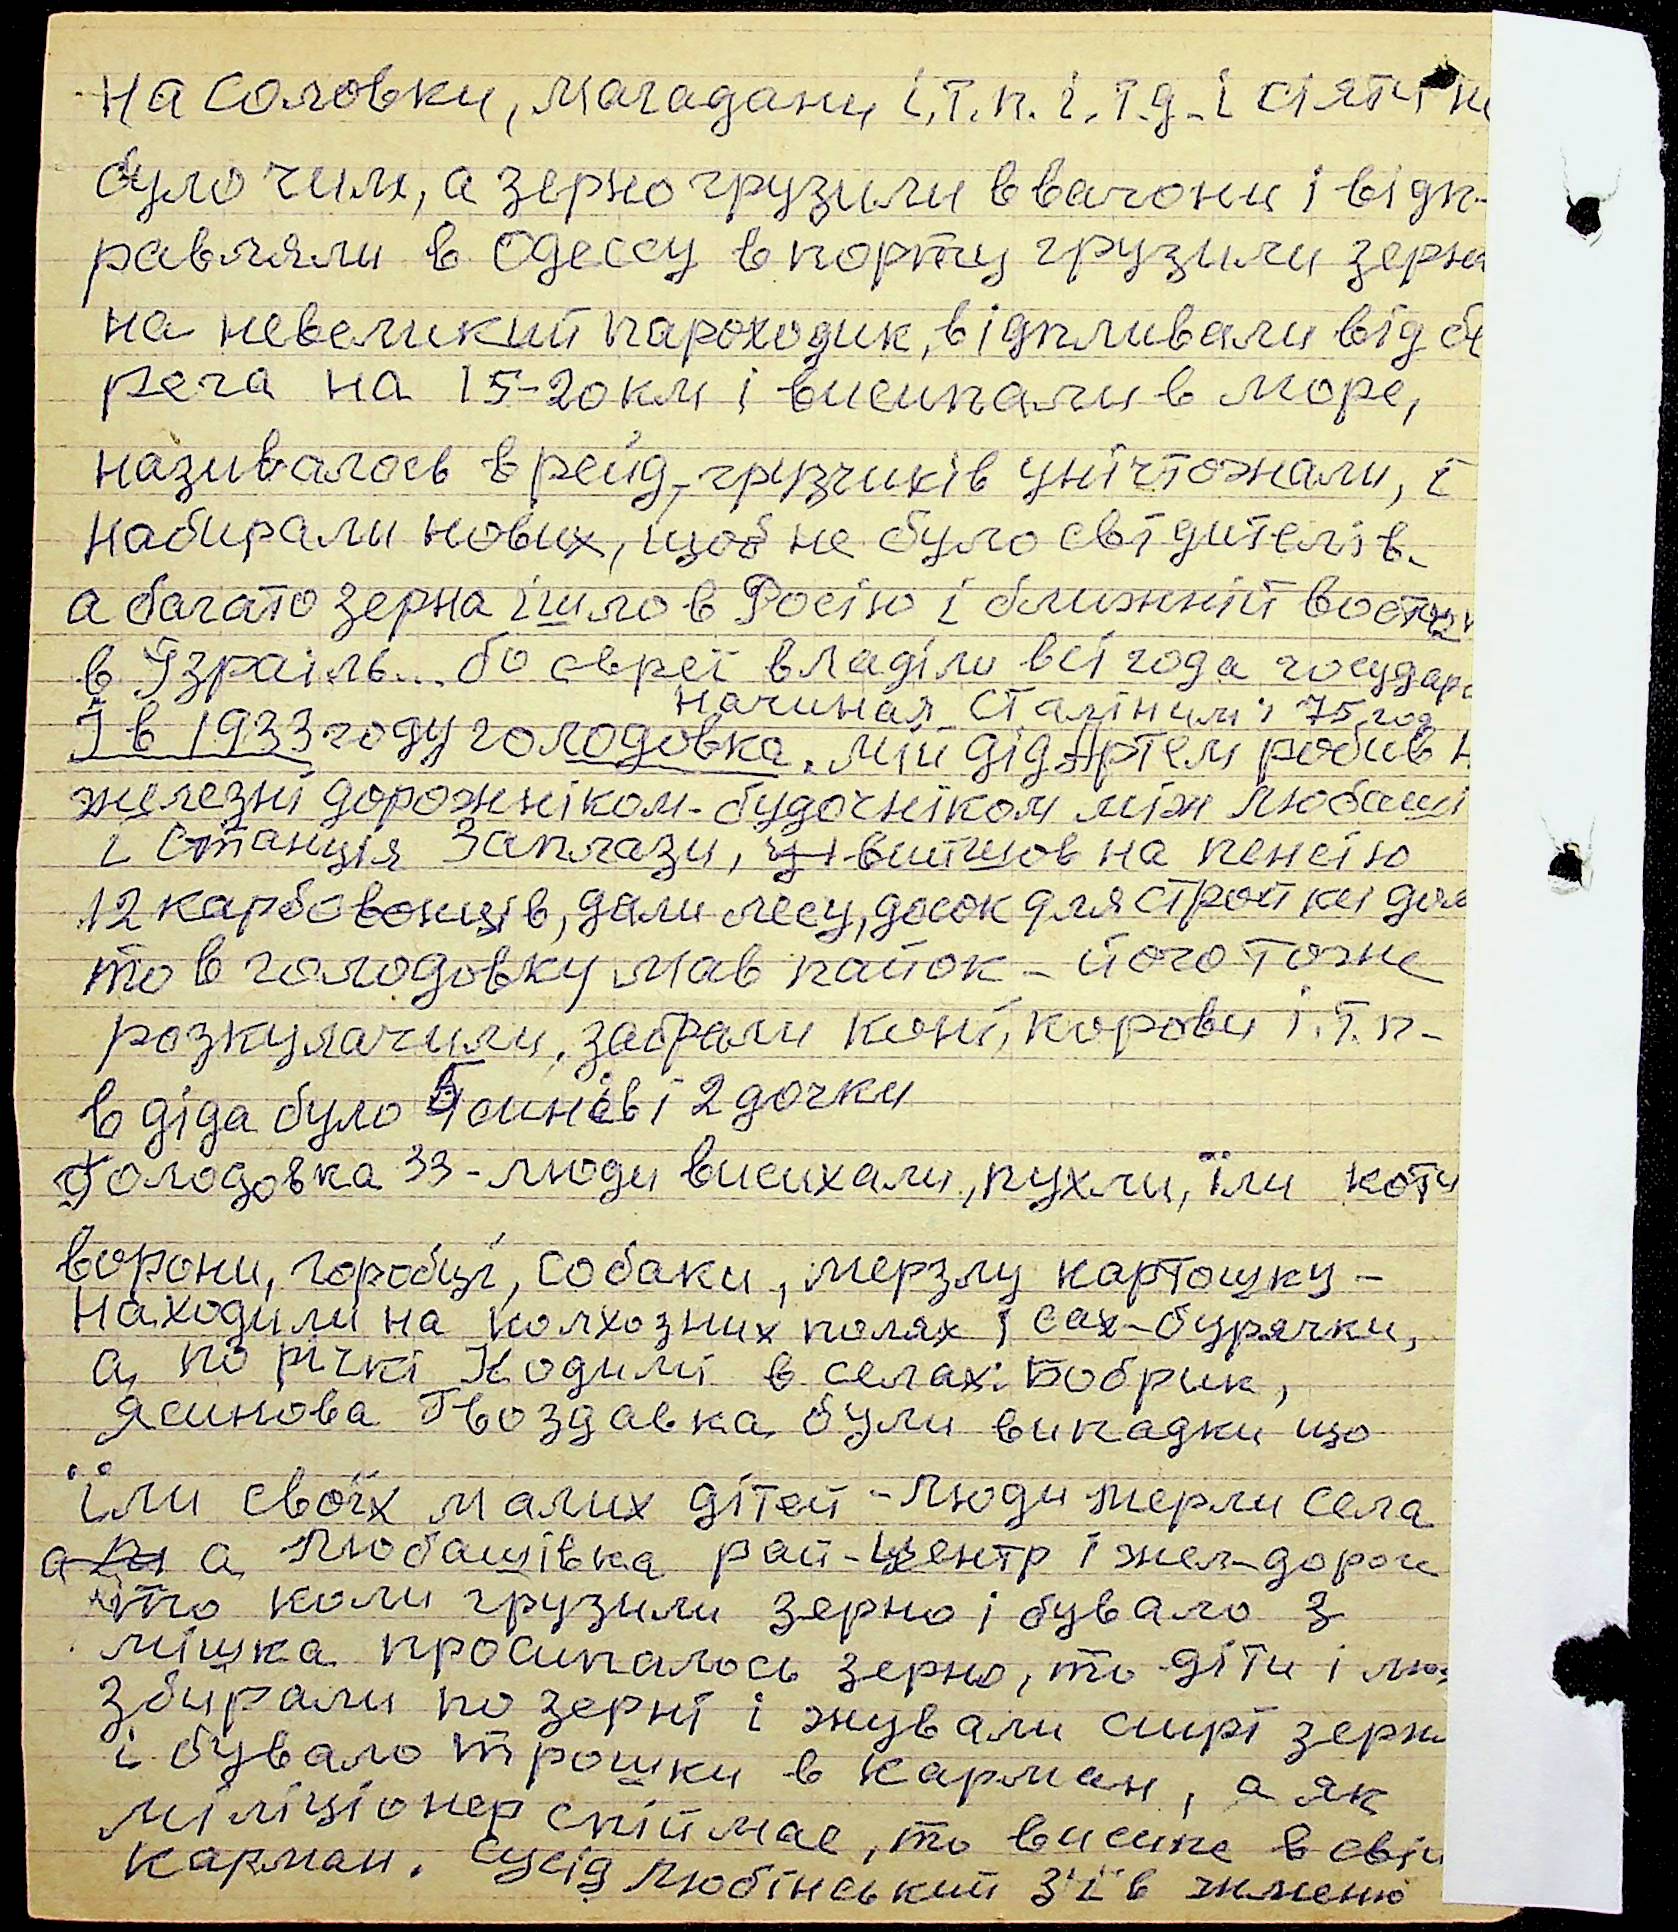 на Соловки, Магадани, і.т.п. і. т.д. і сіяти н
було чим, а зерно грузили в вагони і відп-
равляли в Одессу в порту грузили зерн
на невеликий пароходик, відпливали від бе
рега на 15-20 км і висипали в море,
називалось в рейд, грузчиків унічтожали, і
набирали нових, щоб не було свідителів.
а багато зерна ішло в Росію і ближній восто
в Ізраіль... бо євреї владіли всі года государс
начиная Сталіним і 75 год
І в 1933 году голодовка. мій дід Артем робив н
железні дорожніком-будочніком між Любаші
і Станція Заплази, вийшов на пенсію
12 карбованців, дали лесу, досок для стройки дом
то в голодовку мав пайок - його тоже
розкулачили, забрали коні, корови і.т.п-
в діда було 5 синів і 2 дочки
Голодовка 33 - люди висихали, пухли, їли коти
ворони, горобці, собаки, мерзлу картошку -
находили на колхозних полях і сах-бурячки,
а по річкі Кодимі в селах: Бобрик,
Ясинова Гвоздавка були випадки що
їли своїх малих дітей - люди мерли села
а а Любашівка рай-центр і жел-дорог
то коли грузили зерно і бувало з
мішка просипалось зерно, то діти і лю
збирали по зерні і жували сирі зерн
і бувало трошки в карман, а як
міліціонер спіймає, то висипе в свій
карман. Сусід Любінський з'їв жменю